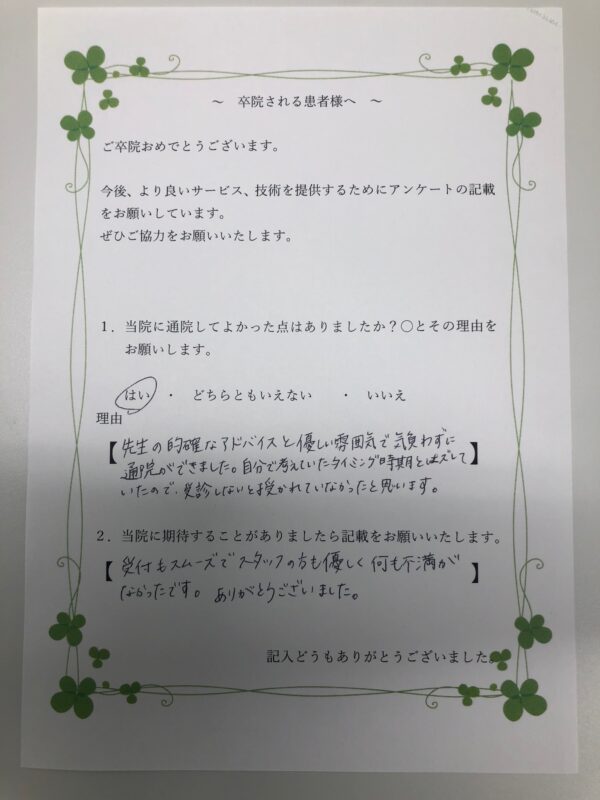 ～ 卒院される患者様へ ～
ご卒院おめでとうございます。
今後、より良いサービス、技術を提供するためにアンケートの記載
をお願いしています。
ぜひご協力をお願いいたします。
1．当院に通院してよかった点はありましたか？〇とその理由を
お願いします。
はい ・ どちらともいえない ・ いいえ
理由
【先生の的確なアドバイスと優しい雰囲気で気負わずに
通院ができました。自分で考えていたタイミング時期とはズレて
いたので、受診しないと授かれていなかったと思います。】
2．当院に期待することがありましたら記載をお願いいたします。
【受付もスムーズでスタッフの方も優しく何も不満が
なかったです。ありがとうございました。】
記入どうもありがとうございました。